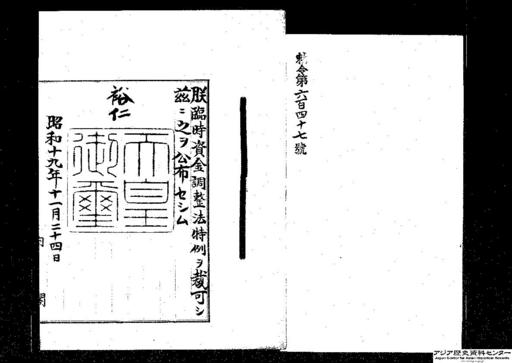 勅令第六百四十七號
朕臨時資金調整法特例ヲ裁可シ
茲ニ之ヲ公布セシム
裕仁
天皇
御璽
昭和十九年十一月二十四日
内閣
アジア歴史資料センター
Japan Center for Asian Historical Records